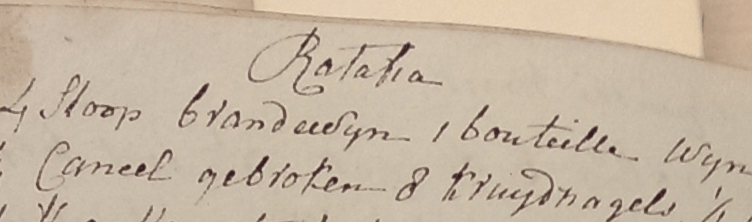 Ratafia
4 Stoop brandewyn 1 bouteille Wyn
Caneel gebroken 8 kruydnagels